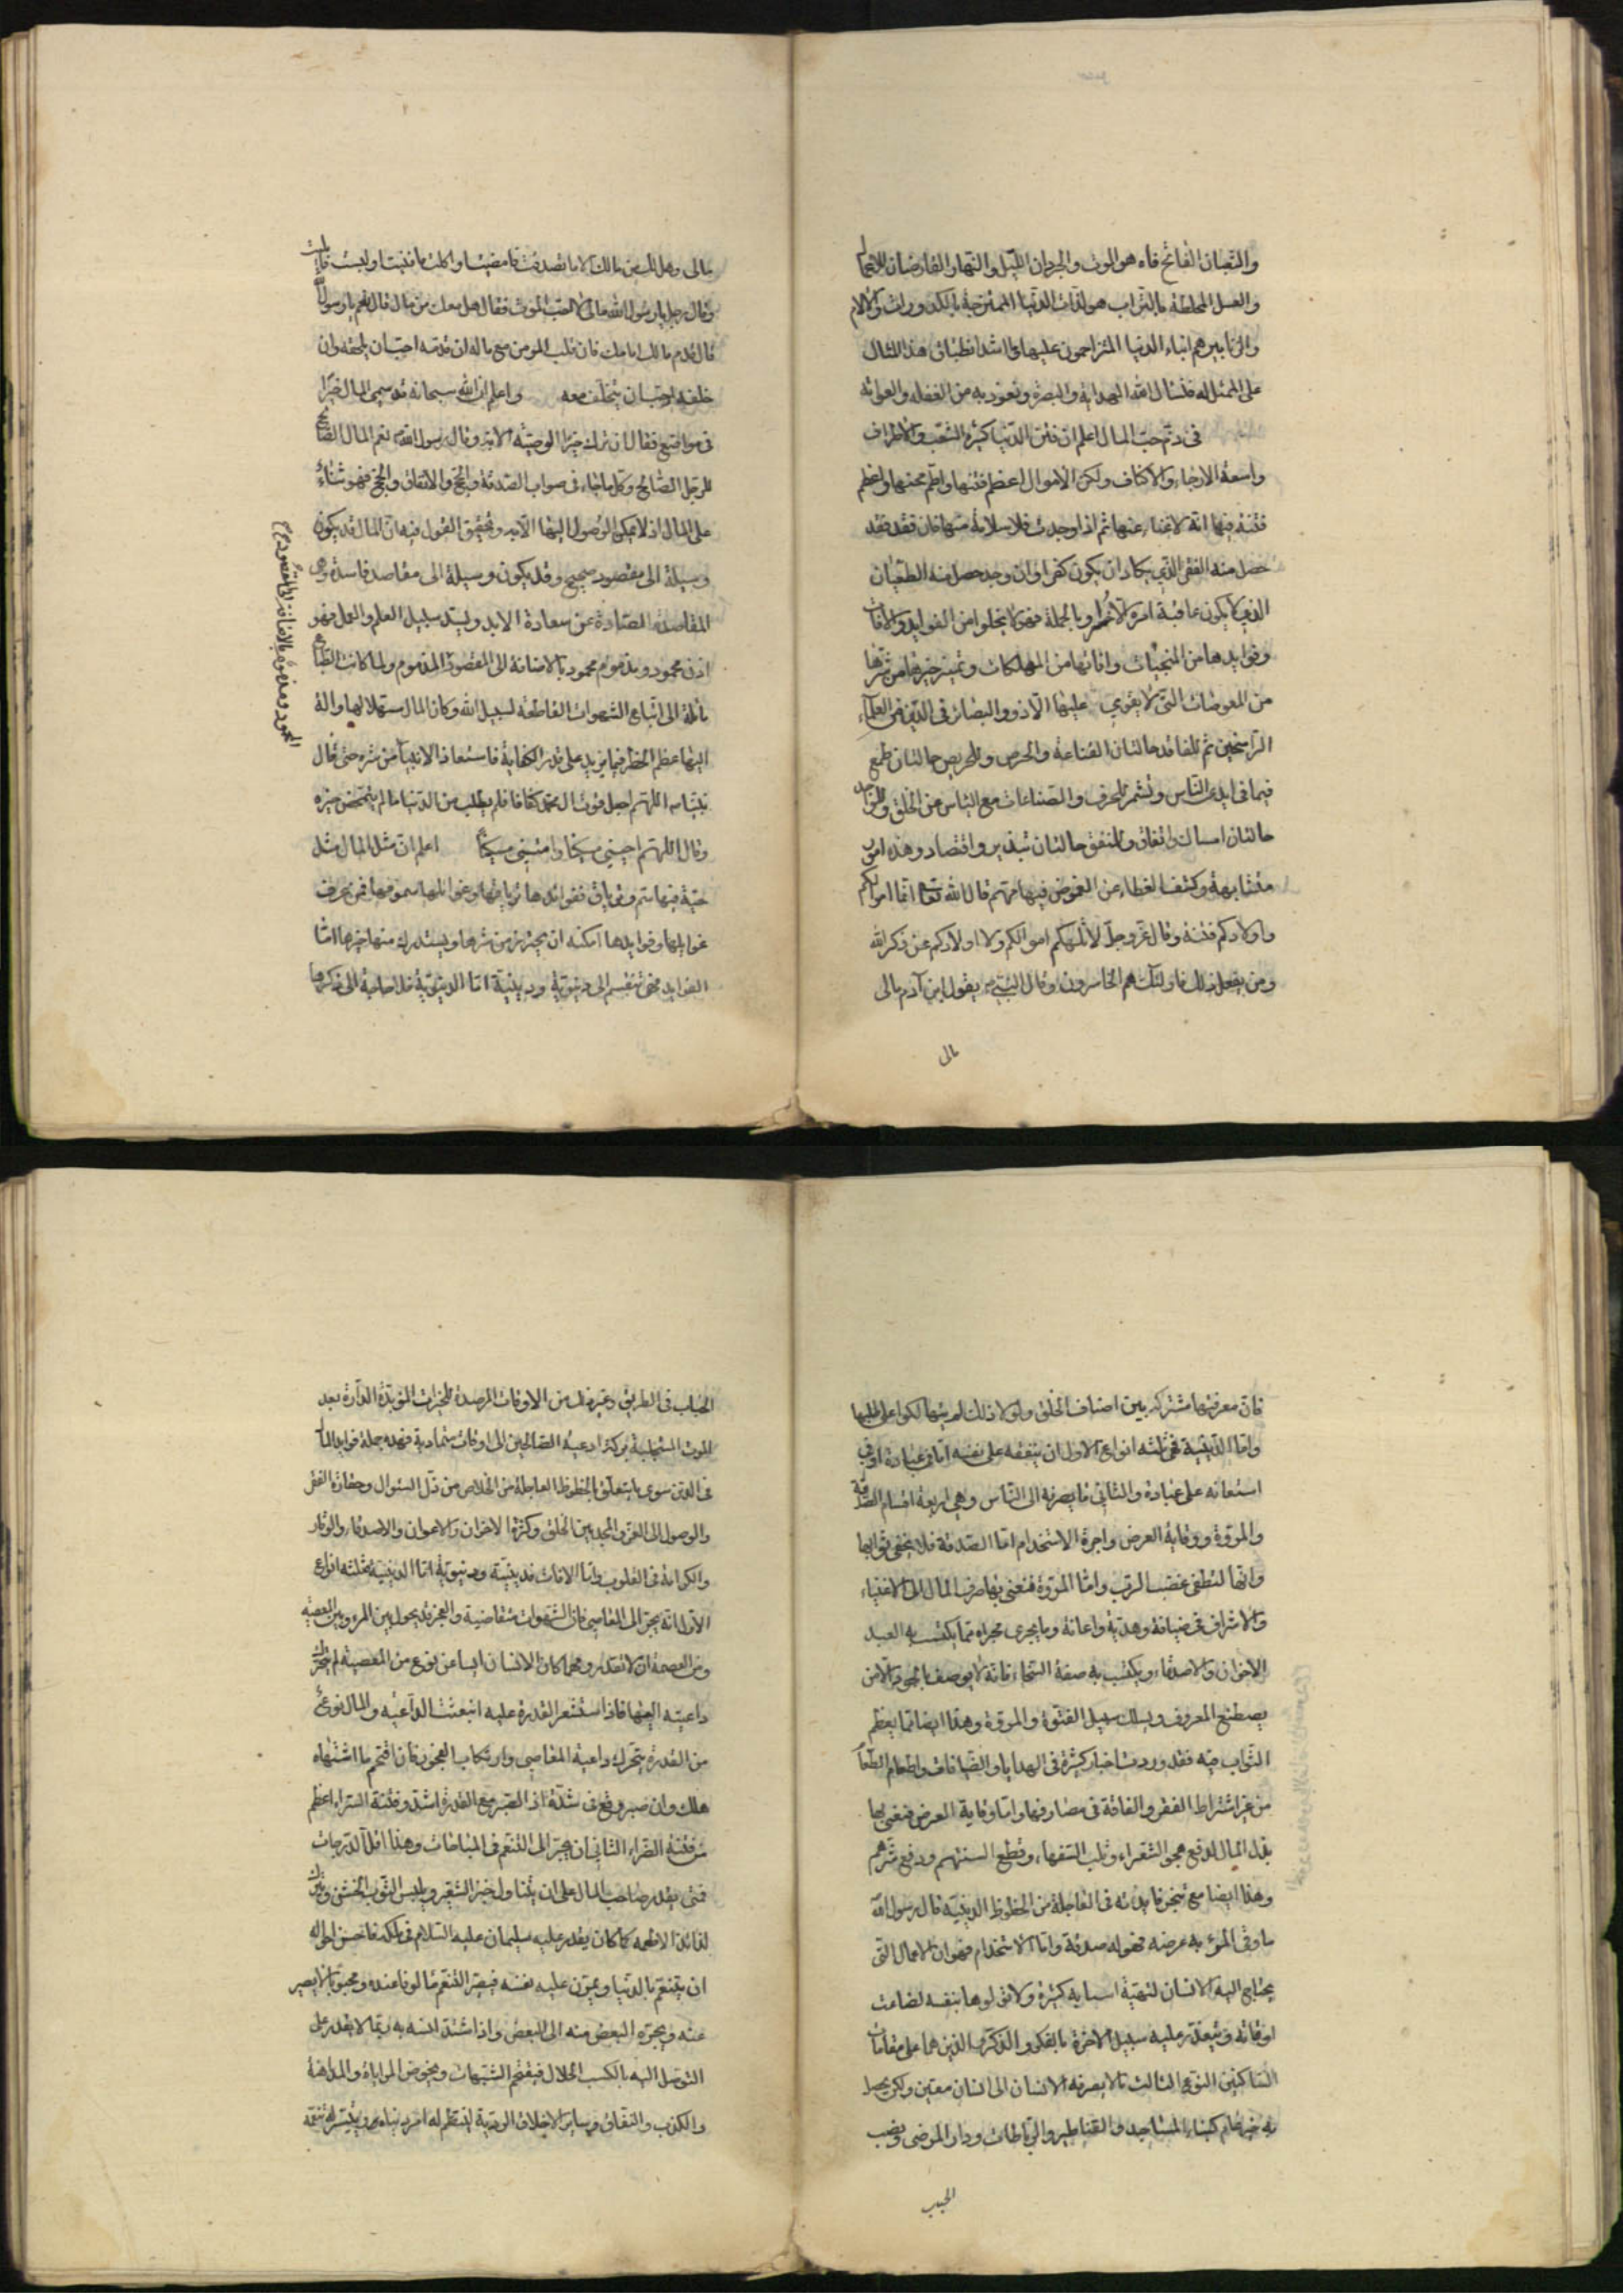 والثعبان الفاتح فاه هو الموت والجرذان الليل والنهار القارضان للاعمار
والعسل المختلطة بالتراب هو لذات الدنيا الممتزجة بالكدورات والالام
والزنابير هم ابناء الدنيا المتزاحمون عليها وما اشد انطباق هذا المثال
على الممثل له فنسال الله الهداية والبصيرة ونعوذ به من الغفلة والغواية
فى ذم حب المال اعلم ان فتن الدنيا كثيرة الشعب والاطراف
واسعة الارجاء والاكناف ولكن الاموال اعظم فتنها واطم محنها واعظم
فتنة فيها انه لا غناء عنها ثم اذا وجدت فلا سلامة منها فان فقد فقد
حصل منه الفقر الذي يكاد ان يكون كفرا وان وجد حصل منه الطغيان
الذي لا يكون عاقبة امره الا خسرا وبالجملة فهو لا يخلوا من الفوايد والافات
وفوايدها من المنجيات وافاتها من المهلكات وتمييز خيرها من شرها
من المعوصات التى لا يقوي عليها الا ذوو البصائر فى الدين من العلماء
الراسخين ثم للفاقد حالتان القناعة والحرص وللحريص حالتان طمع
فيما فى ايدى الناس وتشمر للحرف والصناعات مع الياس من الخلق وللواجد
حالتان امساك وانفاق وللمنفق حالتان تبذير واقتصاد وهذه امور
متشابهة وكشف الغطاء عن الغموض فيها مهم قال الله تعا انما اموالكم
واولادكم فتنة وقال عز وجل لا تلهكم اموالكم ولا اولادكم عن ذكر الله
ومن يفعل ذلك فاولئك هم الخاسرون وقال النبي ص يقول ابن آدم مالى
مالى
مالى وهل لك من مالك الا ما تصدقت فامضيت او اكلت فافنيت او لبست فابليت
وقال رجل يا رسول الله مالى لا احب الموت فقال هل معك من مال قال نعم يا رسول الله
قال قدم مالك امامك فان قلب المؤمن مع ماله ان قدمه احب ان يلحقه وان
خلفه احب ان يتخلف معه واعلم ان الله سبحانه قد سمى المال خيرا
فى مواضع فقال ان ترك خيرا الوصية الاية وقال رسول الله ص نعم المال الصالح
للرجل الصالح وكل ما جاء فى ثواب الصدقة والحج والانفاق والحج فهو ثناء
على المال اذ لا يمكن الوصول اليها الا به وتحقيق القول فيه ان المال قد يكون
وسيلة الى مقصود صحيح وقد يكون وسيلة الى مقاصد فاسدة وهى
المقاصد الصادة عن سعادة الابد ويسد سبيل العلم والعمل فهو
اذن محمود ومذموم محمود بالاضافة الى المقصود المذموم ولما كانت الطباع
مائلة الى اتباع الشهوات القاطعة لسبيل الله وكان المال مسهلا لها والة
اليها عظم الخطر فيما يزيد على قدر الكفاية فاستعاذ الانبيآء من شره حتى قال
نبينا ص اللهم اجعل قوت ال محمد كفافا فلم يطلب من الدنيا ما لم يتمحض خيره
وقال اللهم احينى مسكينا وامتنى مسكينا اعلم ان مثل المال مثل
حية فيها سم وترياق ففوائدها ترياقها وغوائلها سمومها فمن عرف
غوايلها وفوايدها امكنه ان يحترز من شرها ويستدرك منها خيرها اما
الفوايد فهى تنقسم الى دنيوية ودينية اما الدنيوية فلا حاجة الى ذكرها
المحمود ومذموم بالاضافة الى المقصود
فان معرفتها مشتركه بين اصناف الخلق ولولا ذلك لم يتهالكوا على طلبها
واما الدينية فهى ثلثه انواع الاول ان ينفقه على نفسه اما فى عبادة او فى
استعانه على عبادة والثانى ما يصرفه الى الناس وهى اربعة اقسام الصدقة
والمروة ووقاية العرض واجرة الاستخدام اما الصدقة فلا يخفى ثوابها
وانها لتطفى غضب الرب واما المروة فنعنى بها صرف المال الى الاغنياء
والاشراف فى ضيافة وهدية واعانة وما يجرى مجراه مما يكتسب به العبد
الاخوان والاصدقاء ويكتسب به صفة السخاء فانه لا يوصف بالجود الا من
يصطنع المعروف ويسلك سبيل الفتوة والمروة وهذا ايضا مما يعظم
الثواب فيه فقد وردت اخبار كثيرة فى الهدايا والضيافات واطعام الطعام
من غير اشتراط الفقر والفاقة فى مصارفها واما وقاية العرض فنعنى بها
بذل المال لدفع هجو الشعراء وثلب السفهاء وقطع السنتهم ودفع شرهم
وهذا ايضا مع تنجز فايدته فى العاجلة من الحظوظ الدينية قال رسول الله
ما وقى المرء به عرضه فهو له صدقة واما الاستخدام فهو ان الاعمال التى
يحتاج اليه الانسان لتهيئة اسبابه كثيرة ولو تولوها بنفسه لضاعت
اوقاته وتيعذر عليه سبيل الاخرة بالفكر والذكر الذين هما على مقامات
السالكين النوع الثالث ما لا يصرفه الانسان الى انسان معين ولكن يحصل
به خير عام كبناء المساجد والقناطير والرباطات ودار المرضى ونصب
الحبب
الحباب فى الطريق وغير ذلك من الاوقاف المرصدة للخيرات المؤبدة الدارة بعد
الموت المستجلبة بركة ادعية الصالحين الى اوقات متمادية فهذه جملة فوايد المال
فى الدين سوى ما يتعلق بالحظوظ العاجلة من الخلاص من ذل السئوال وحقارة الفقر
والوصول الى العز والمجد بين الخلق وكثرة الاخوان والاعوان والاصدقاء والوقار
والكرامة فى القلوب واما الافات فدينية ودنيوية اما الدينية فثلثه انواع
الاول انه يجر الى المعاصى فان الشهوات متقاضية والعجز قد يحول بين المرء وبين المعصية
ومن العصمة ان لا تقدر ومهما كان الانسان ايسا عن نوع من المعصية لم يتحرك
داعيته اليها فاذا استشعر القدرة عليه انبعثت الداعيه والمال نوع
من القدرة يتحرك داعية المعاصى وارتكاب الفجور فان اقتحم ما اشتهاه
هلك وان صبر وقع فى شدة اذ الصبر مع القدرة اشد وفتنة السراء اعظم
من فتنة الضراء الثانى ان يجر الى التنعم فى المباحات وهذا اقل الدرجات
فمتى يقدر صاحب المال على ان يتناول خبز الشعير ويلبس الثوب الخشن ويترك
لذائذ الاطعمه كما كان يقدر عليه سليمان عليه السلام فى ملكه فاحسن احواله
ان يتنعم بالدنيا ويمرن عليه نفسه فيصير التنعم مالوفا عنده ومحبوبا لا يصبر
عنه ويجره البعض منه الى البعض واذا اشتد انسه به ربما لا يقدر على
التوصل اليه بالكسب الحلال فيقتحم الشبهات ويخوض المراياة والمداهنة
والكذب والنفاق وساير الاخلاق الردية لينتظم له امر دنياه ويتيسر له تنعمه